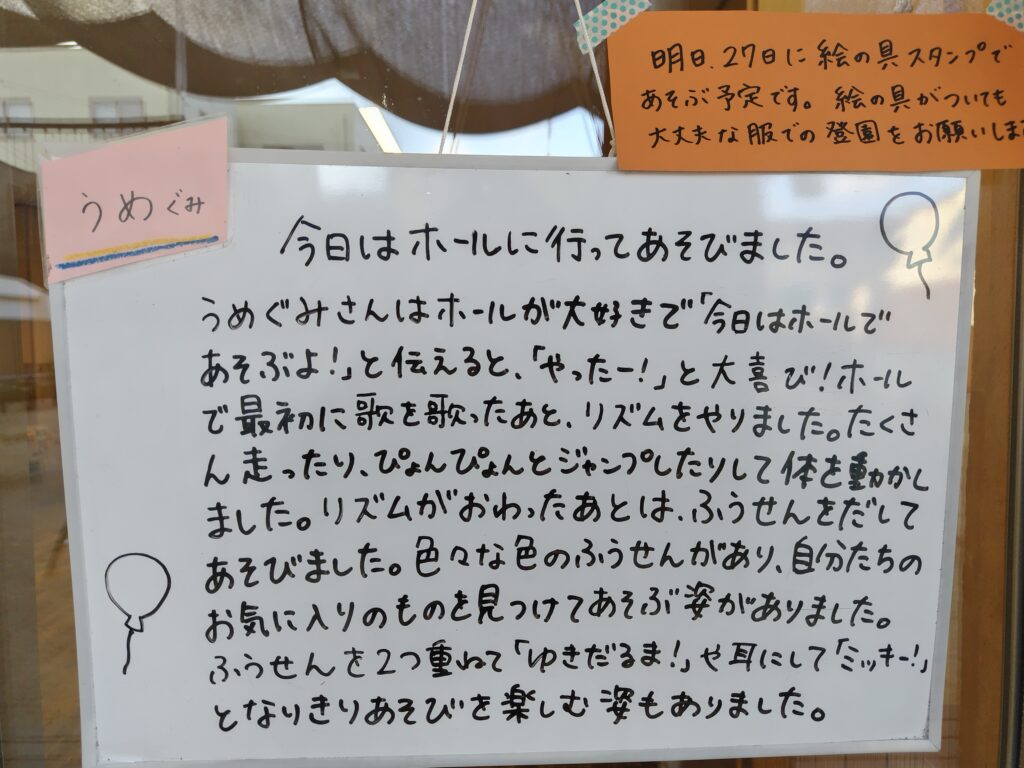 明日、27日に絵の具スタンプで
あそぶ予定です。絵の具がついても
大丈夫な服での登園をお願いしま
うめぐみ
今日はホールに行ってあそびました。
うめぐみさんはホールが大好きで「今日はホールで
あそぶよ!」と伝えると、「やったー!」と大喜び!ホール
で最初に歌を歌ったあと、リズムをやりました。たくさ
ん走ったり、ぴょんぴょんとジャンプしたりして体を動かし
ました。リズムがおわったあとは、ふうせんをだして
あそびました。色々な色のふうせんがあり、自分たちの
お気に入りのものを見つけてあそぶ姿がありました。
ふうせんを2つ重ねて「ゆきだるま!」や耳にして「ミッキー!」
となりきりあそびを楽しむ姿もありました。